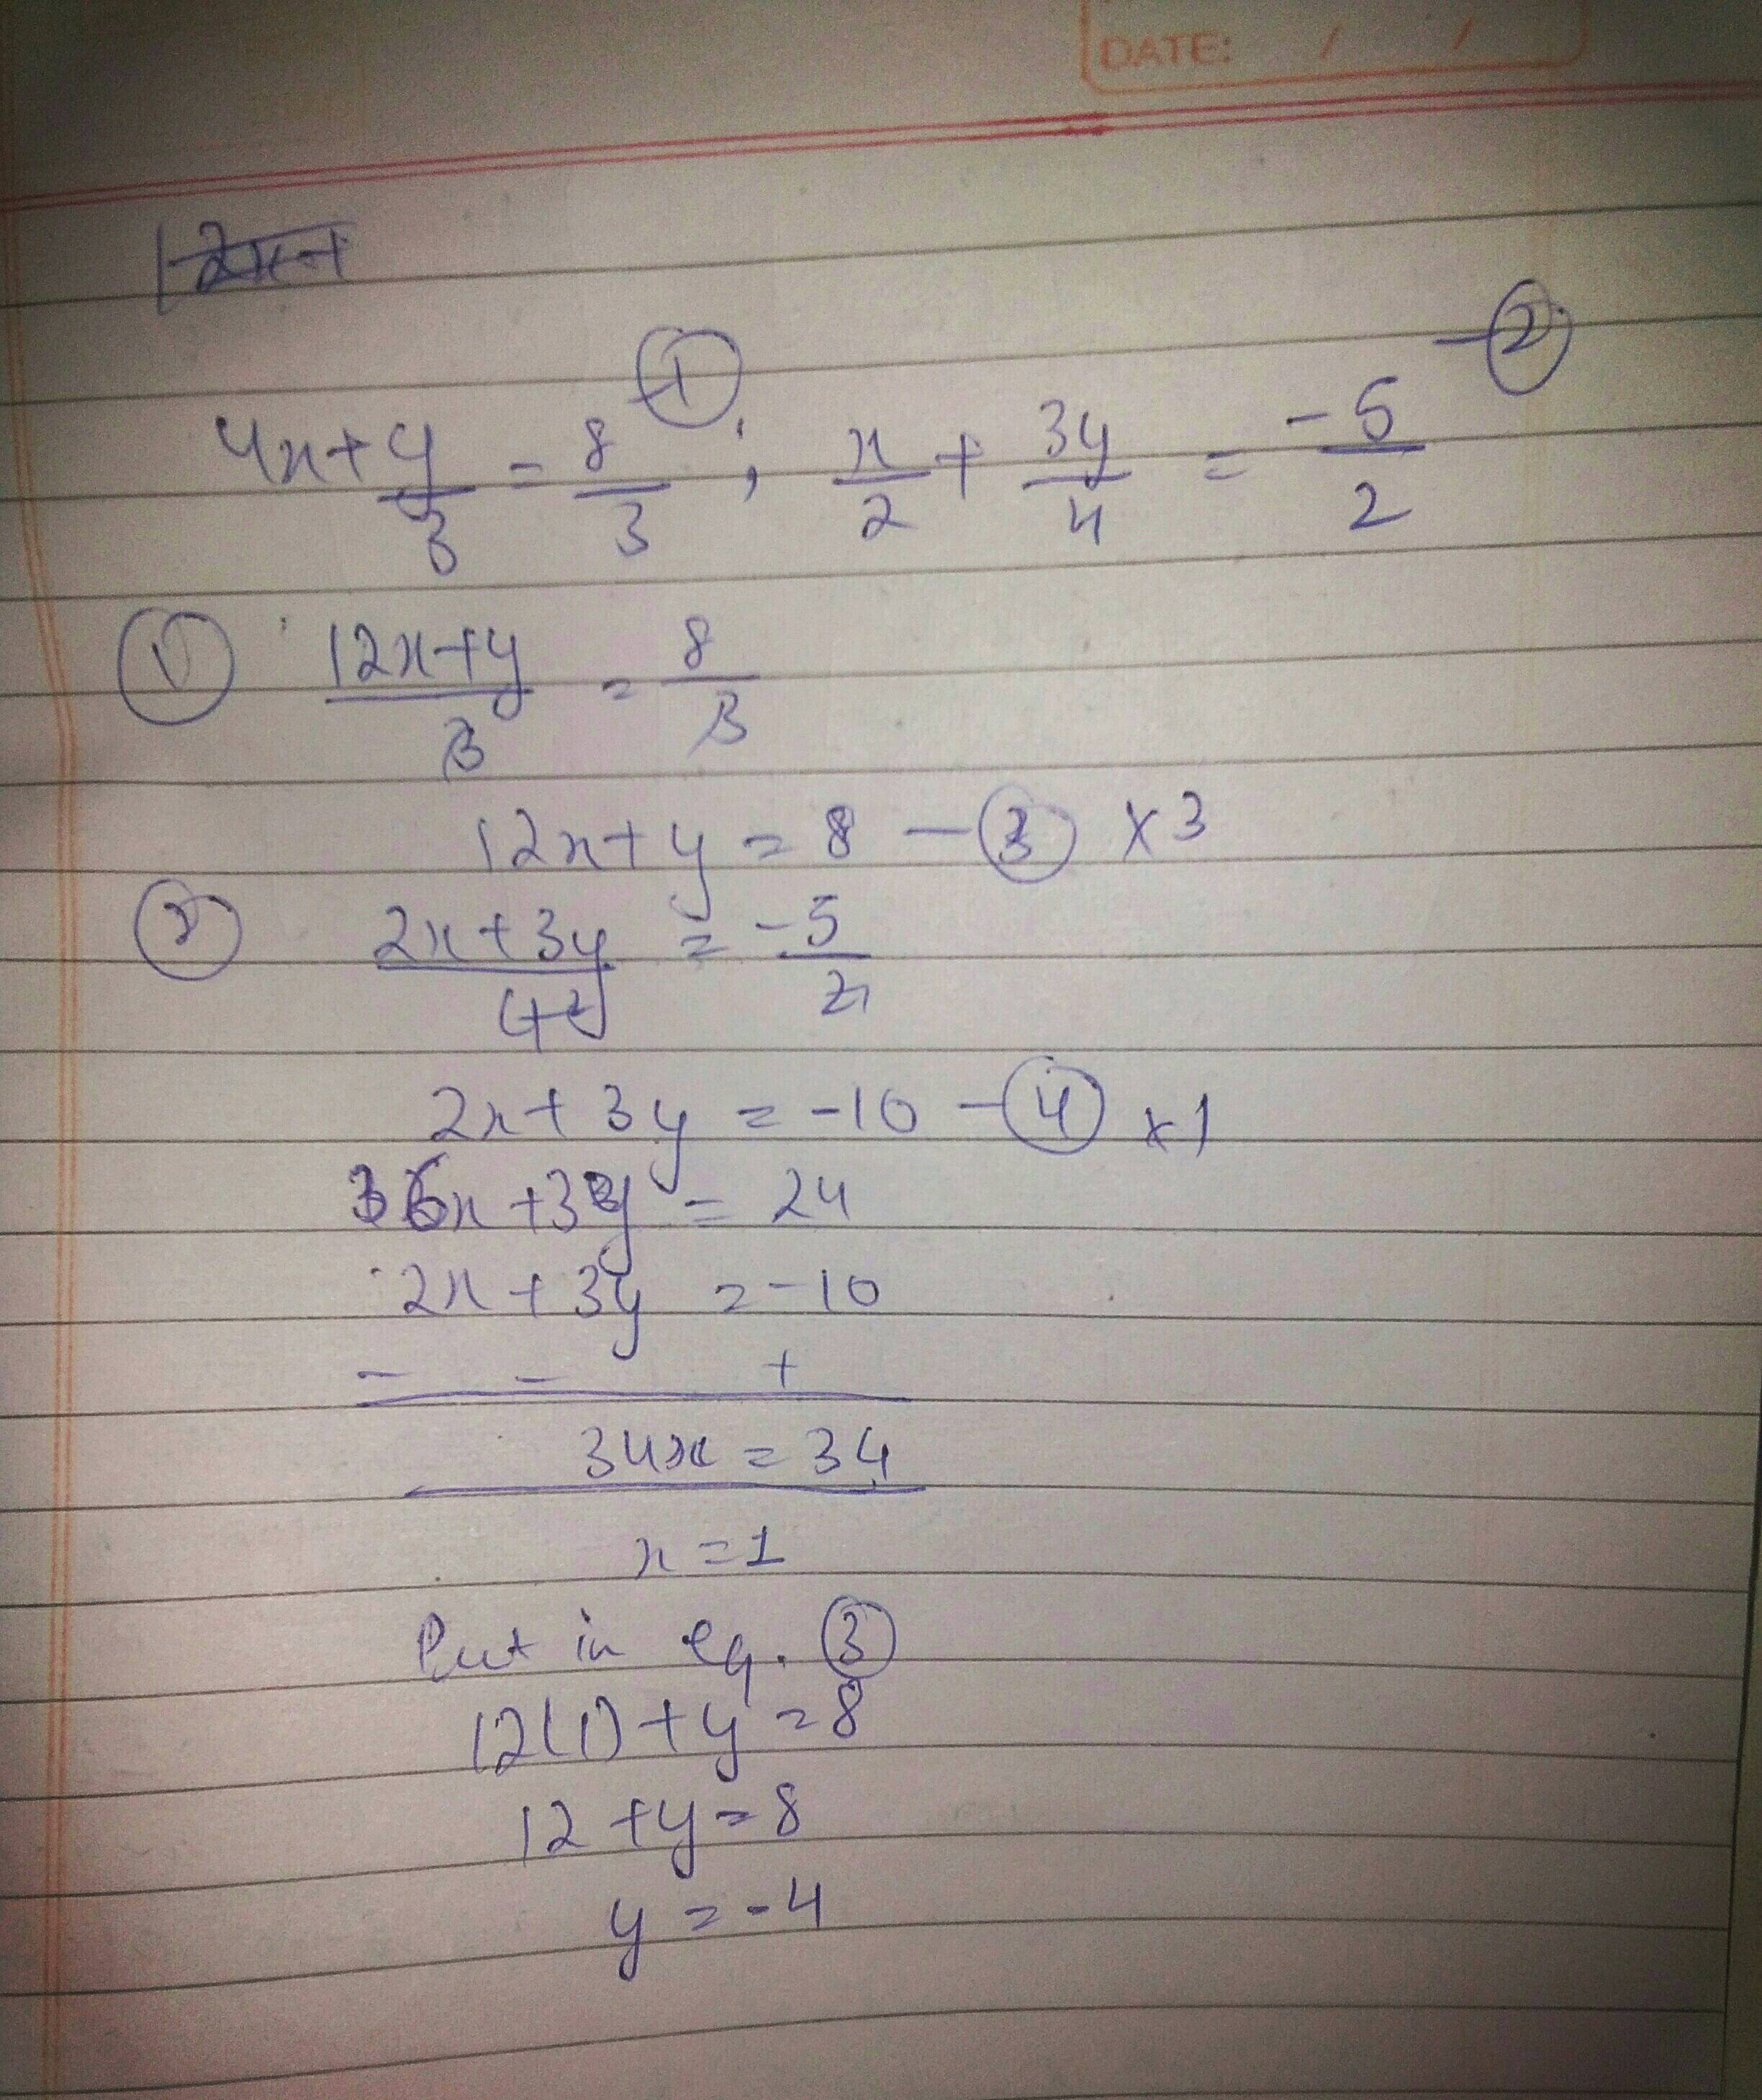 DATE: / /
12x+
4x+y/3 = 8/3 -① ; x/2 + 3y/4 = -5/2 -②
① 12x+y/3 = 8/3
12x+y = 8 -③ ×3
② 2x+3y/4 2 = -5/2 1
2x+3y = -10 -④ ×1
36x+3y = 24
2x+3y = -10
- - +
34x = 34
x=1
Put in eq. ③
12(1)+y=8
12+y=8
y=-4